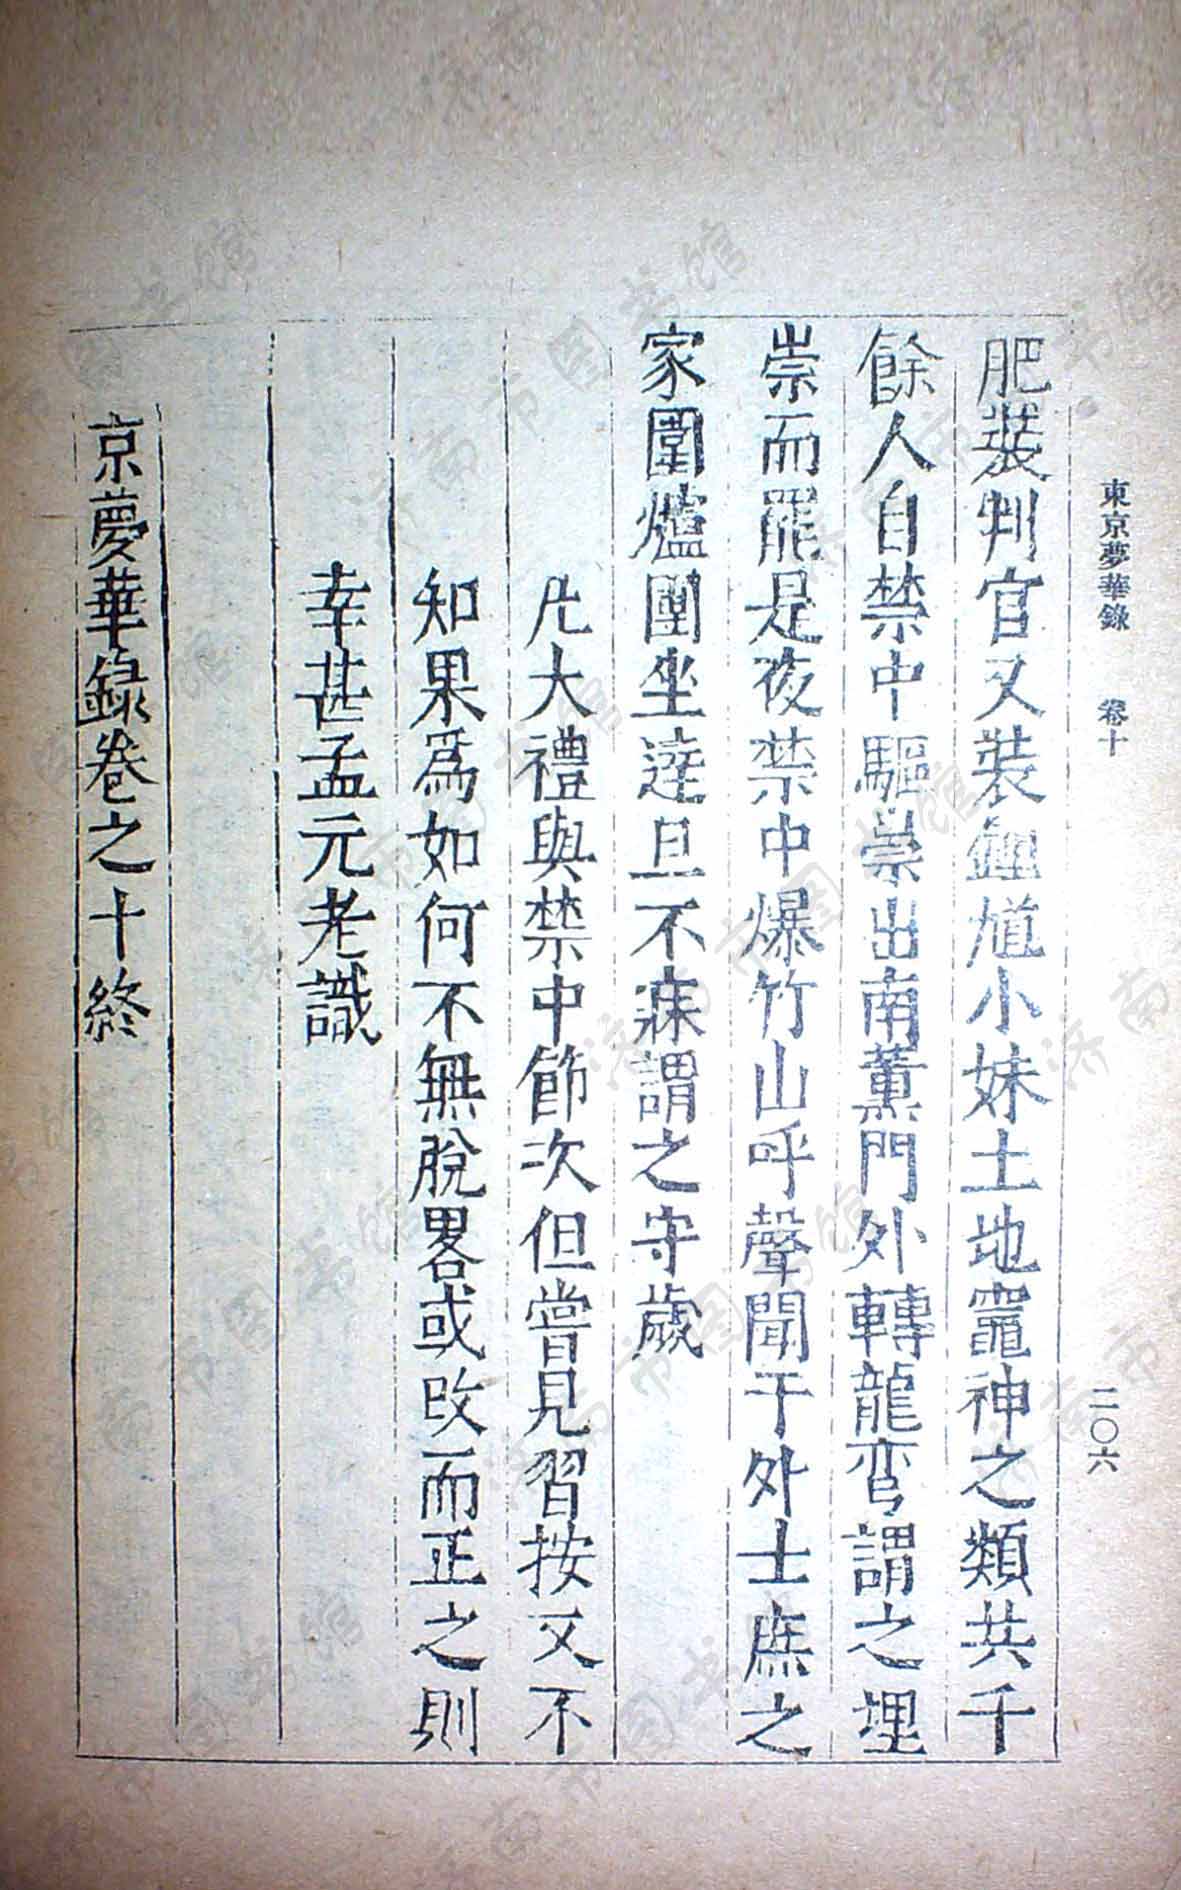 東京夢華錄 卷十
二〇六
肥裝判官又裝鍾馗小妹土地竈神之類共千
餘人自禁中驅祟出南薰門外轉龍彎謂之埋
祟而罷是夜禁中爆竹山呼聲聞于外士庶之
家圍爐團坐達旦不寐謂之守歲
凡大禮與禁中節次但嘗見習按又不
知果爲如何不無脫畧或改而正之則
幸甚孟元老識
京夢華錄卷之十終
济南市图书馆